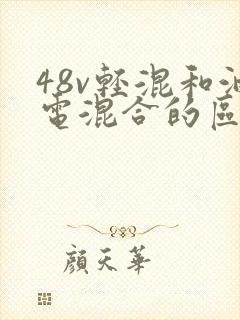 48v輕混和油
電混合的區
顏天華